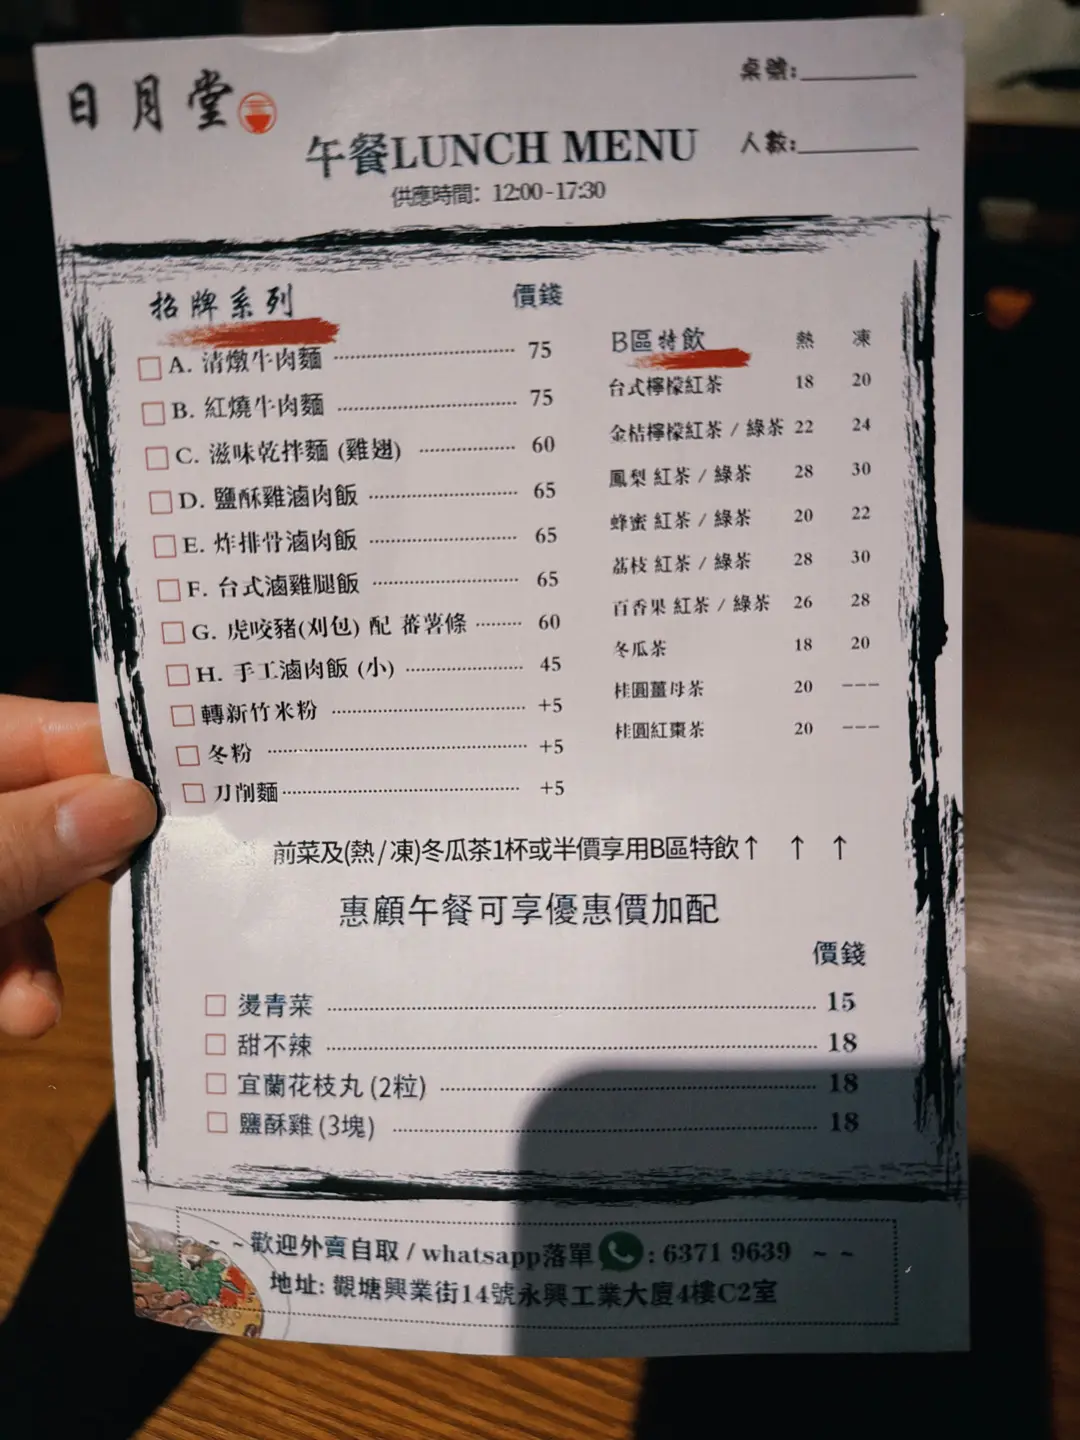 日月堂
桌號:
午餐LUNCH MENU
人數:
供應時間: 12:00-17:30
招牌系列 價錢
A. 清燉牛肉麵 75
B. 紅燒牛肉麵 75
C. 滋味乾拌麵 (雞翅) 60
D. 鹽酥雞滷肉飯 65
E. 炸排骨滷肉飯 65
F. 台式滷雞腿飯 65
G. 虎咬豬(刈包) 配 蕃薯條 60
H. 手工滷肉飯 (小) 45
轉新竹米粉 +5
冬粉 +5
刀削麵 +5
B區特飲 熱 凍
台式檸檬紅茶 18 20
金桔檸檬紅茶 / 綠茶 22 24
鳳梨 紅茶 / 綠茶 28 30
蜂蜜 紅茶 / 綠茶 20 22
荔枝 紅茶 / 綠茶 28 30
百香果 紅茶 / 綠茶 26 28
冬瓜茶 18 20
桂圓薑母茶 20 ---
桂圓紅棗茶 20 ---
前菜及(熱/凍)冬瓜茶1杯或半價享用B區特飲↑ ↑ ↑
惠顧午餐可享優惠價加配
價錢
燙青菜 15
甜不辣 18
宜蘭花枝丸 (2粒) 18
鹽酥雞 (3塊) 18
~ ~歡迎外賣自取 / whatsapp落單 : 6371 9639 ~ ~
地址: 觀塘興業街14號永興工業大廈4樓C2室